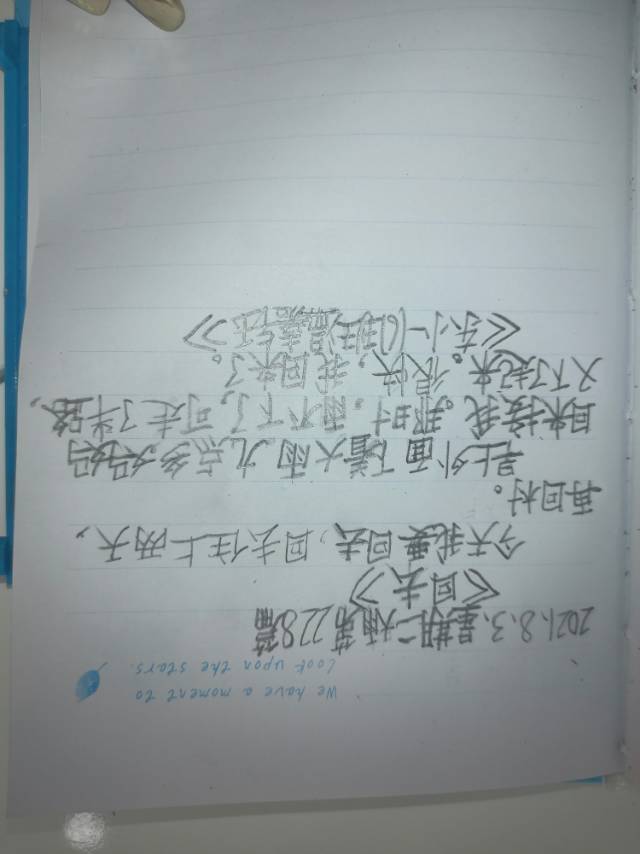 We have a moment to
Look upon the stars.
2021.8.3.星期二 第228篇
《回去》
今天我要回去,回去住上两天,
再回村。
早上外面下着大雨,九点多妈妈
回来接我。那时,雨不下了,可走了半路,
又下了起来。很快,我回来了。
《东小一(1)班温嘉钰》